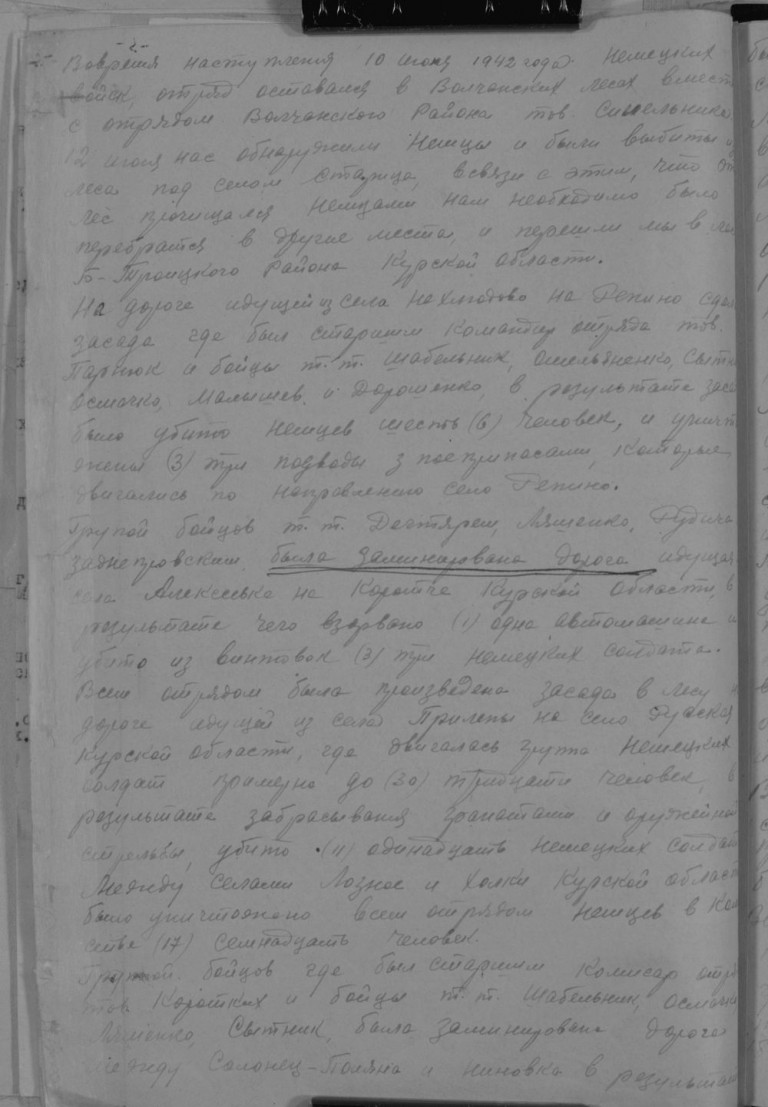 Вовремя наступления 10 июня 1942 года немецких
войск, отряд оставался в Волчанских лесах вмест
с отрядом Волчанского Района тов. Синельника
12 июня нас обнаружили Немцы и были выбиты и
леса под селом Старица, всвязи с этим, что
лес прочищался Немцами нам необходимо было
перебратся в другие места, и перешли мы в ле
Б-Троицкого района Курской области.
На дороге идущей из села Нехлюдово на Репино сдел
засада где был старшим командир отряда тов.
Парнюк и бойцы т.т. Шабельник, Омельяненко, Сытн
Осмачко, Малышев и Дорошенко, в результате заса
было убито немцев шесть (6) человек, и уничт
жены (3) три подводы з поеприпасами, которые
двигались по направлению село Репино.
Групой бойцов т.т. Дегтярем, Ляшенко,
Заднепровским была заминирована дорога идущая
села Алексеевка на Короча Курской области, в
результате чего взорвано (1) одна автомашина и
убито из винтовок (3) три немецких солдата.
Всем отрядом была произведена засада в лесу н
дороге идущей из села Прилепы на село
Курской области, где двигалась група Немецких
солдат примерно до (30) тридцати человек, в
результате забрасывания гранатами и оружейной
стрельбы, убито (11) одинадцать немецких солдат
Между селами Лозное и Холки Курской област
было уничтожено всем отрядом немцев в кол
стве (17) семнадцать человек.
Групой бойцов где был старшим комисар отря
тов. Коротких и бойцы т.т. Шабельник, Осмачк
Ляшенко, Сытник, была заминирована дорога
между Солонец-Поляна и Ниновка в результат